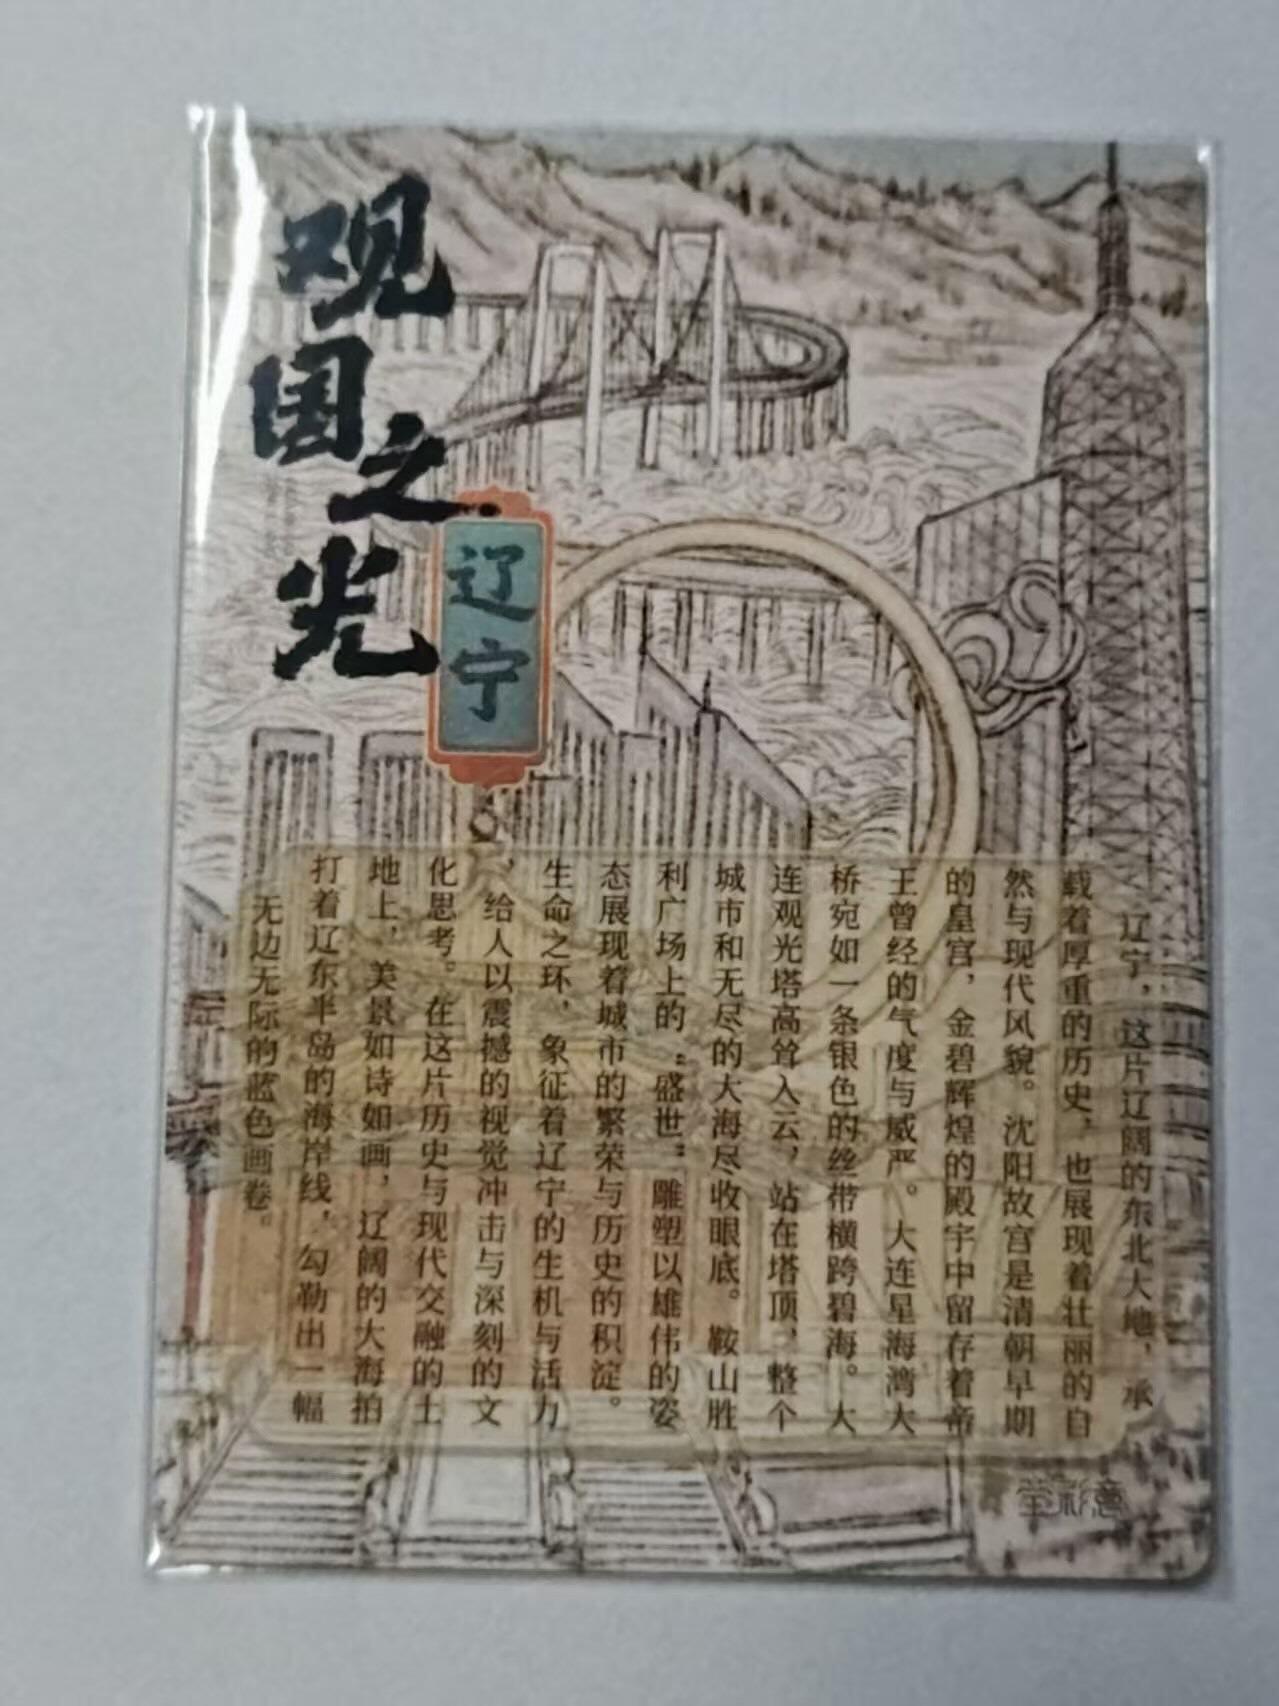 观国之光
辽宁
辽宁，这片辽阔的东北大地，承
载着厚重的历史，也展现着壮丽的自
然与现代风貌。沈阳故宫是清朝早期
的皇宫，金碧辉煌的殿宇中留存着帝
王曾经的气度与威严。大连星海湾大
桥宛如一条银色的丝带横跨碧海。大
连观光塔高耸入云，站在塔顶，整个
城市和无尽的大海尽收眼底。鞍山胜
利广场上的“盛世”雕塑以雄伟的姿
态展现着城市的繁荣与历史的积淀。
生命之环，象征着辽宁的生机与活力
，给人以震撼的视觉冲击与深刻的文
化思考。在这片历史与现代交融的土
地上，美景如诗如画，辽阔的大海拍
打着辽东半岛的海岸线，勾勒出一幅
无边无际的蓝色画卷。